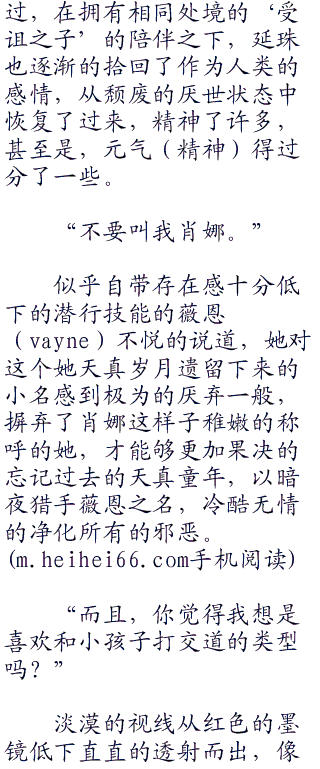 过，在拥有相同处境的‘受
诅之子’的陪伴之下，延珠
也逐渐的拾回了作为人类的
感情，从颓废的厌世状态中
恢复了过来，精神了许多，
甚至是，元气（精神）得过
分了一些。
“不要叫我肖娜。”
似乎自带存在感十分低
下的潜行技能的薇恩
（vayne）不悦的说道，她对
这个她天真岁月遗留下来的
小名感到极为的厌弃一般，
摒弃了肖娜这样子稚嫩的称
呼的她，才能够更加果决的
忘记过去的天真童年，以暗
夜猎手薇恩之名，冷酷无情
的净化所有的邪恶。
(m.heihei66.com手机阅读)
“而且，你觉得我想是
喜欢和小孩子打交道的类型
吗？”
淡漠的视线从红色的墨
镜低下直直的透射而出，像